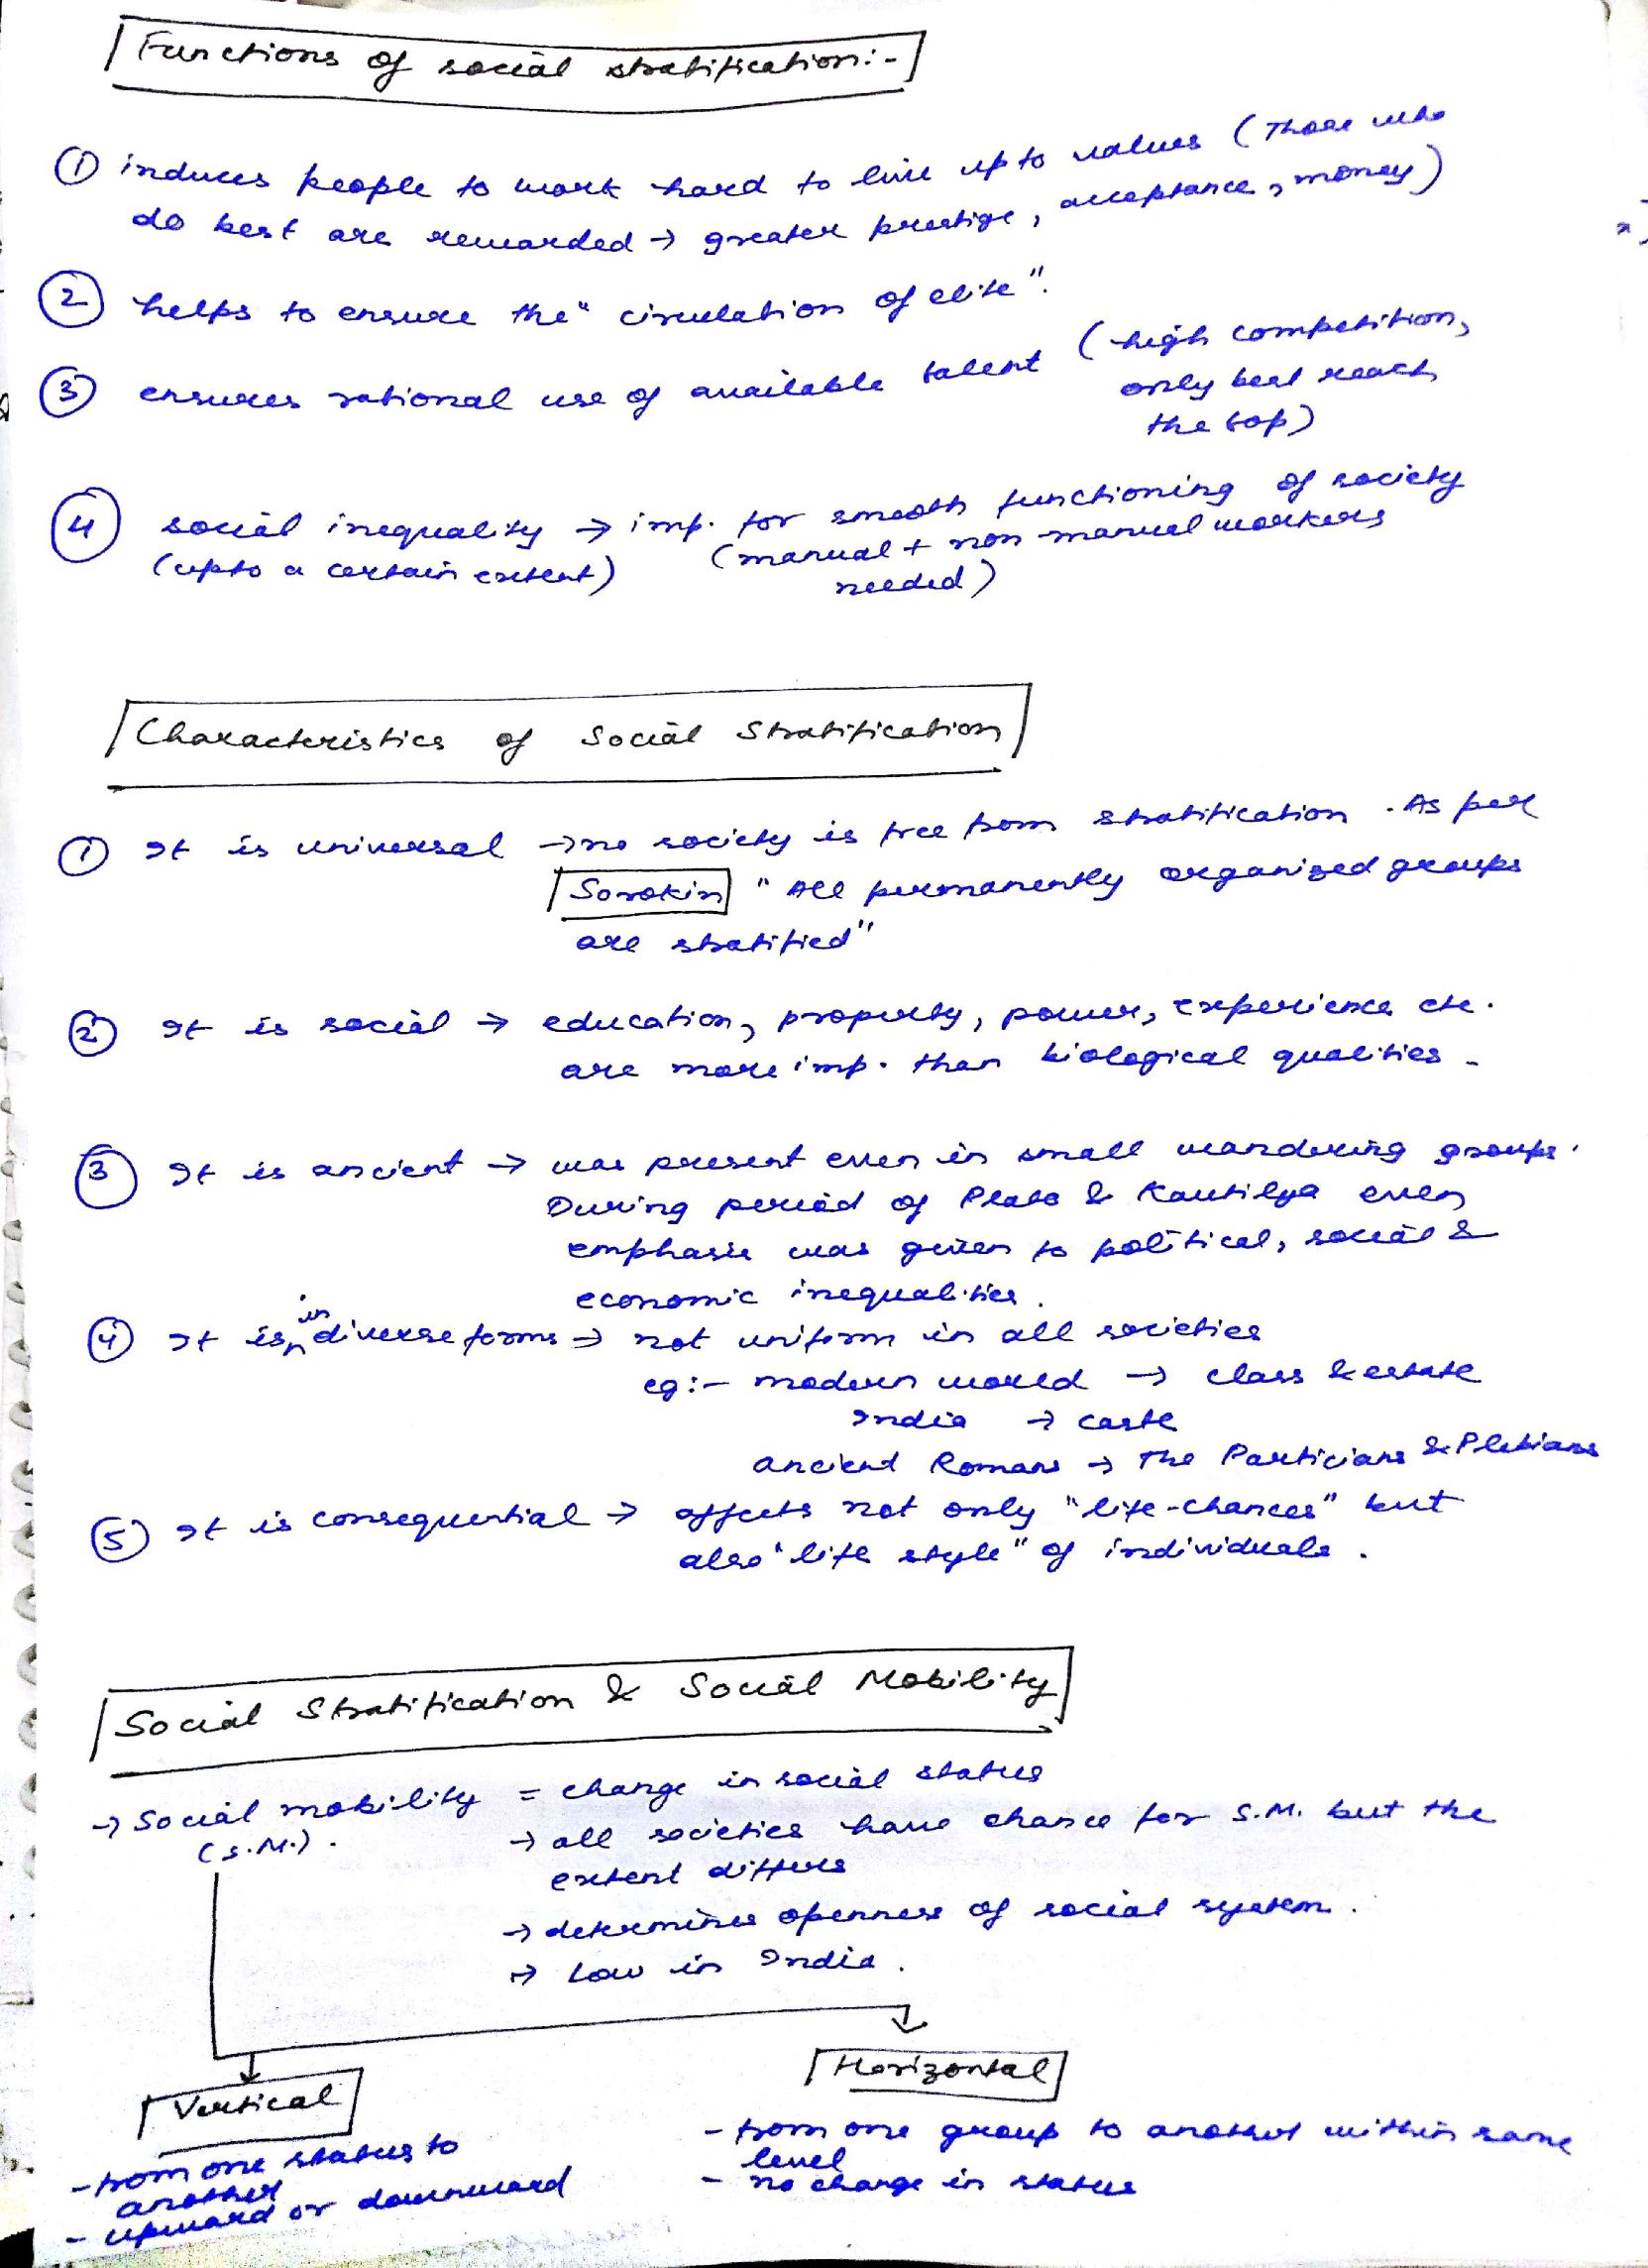 Functions of social stratification:-
① induces people to work hard to live up to values (Those who
do best are rewarded → greater prestige, acceptance, money)
② helps to ensure the "circulation of elite".
③ ensures rational use of available talent (high competition,
only best reach
the top)
④ social inequality → imp. for smooth functioning of society
(upto a certain extent) (manual + non-manual workers
needed)
Characteristics of Social Stratification
① It is universal → no society is free from stratification. As per
Sorokin "All permanently organized groups
are stratified"
② It is social → education, property, power, experience etc.
are more imp. than biological qualities.
③ It is ancient → was present even in small wandering groups.
During period of Plato & Kautilya even
emphasis was given to political, social &
economic inequalities.
④ It is in diverse forms → not uniform in all societies
eg:- modern world → class & estate
India → caste
ancient Romans → The Particians & Plebians
⑤ It is consequential → affects not only "life-chances" but
also "life style" of individuals.
Social Stratification & Social Mobility
→ Social mobility = change in social status
(S.M.). → all societies have chance for S.M. but the
extent differs
→ determines openness of social system.
→ Low in India.
Vertical
- from one status to
another
- upward or downward
Horizontal
- from one group to another within same
level
- no change in status